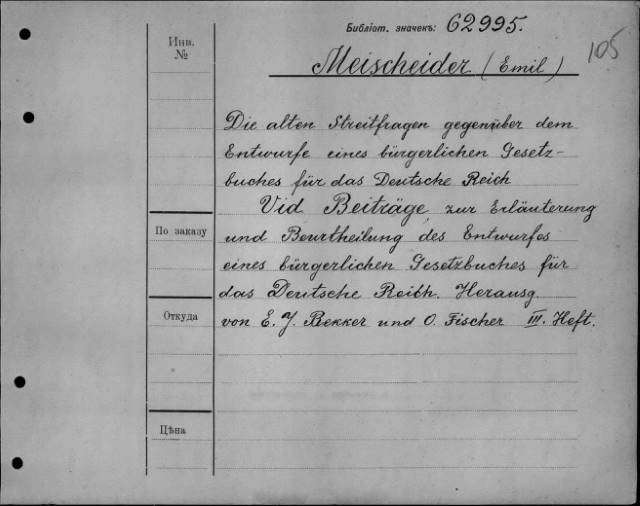 Библіот. значекъ: 62995.
105
Инв.
№
Meischeider (Emil)
Die alten Streitfragen gegenüber dem
Entwurfe eines bürgerlichen Gesetz-
buches für das Deutsche Reich
Vid Beiträge zur Erläuterung
По заказу
und Beurtheilung des Entwurfes
eines bürgerlichen Gesetzbuches für
das Deutsche Reich. Herausg.
Откуда
von E. J. Bekker und O. Fischer III. Heft.
Цѣна